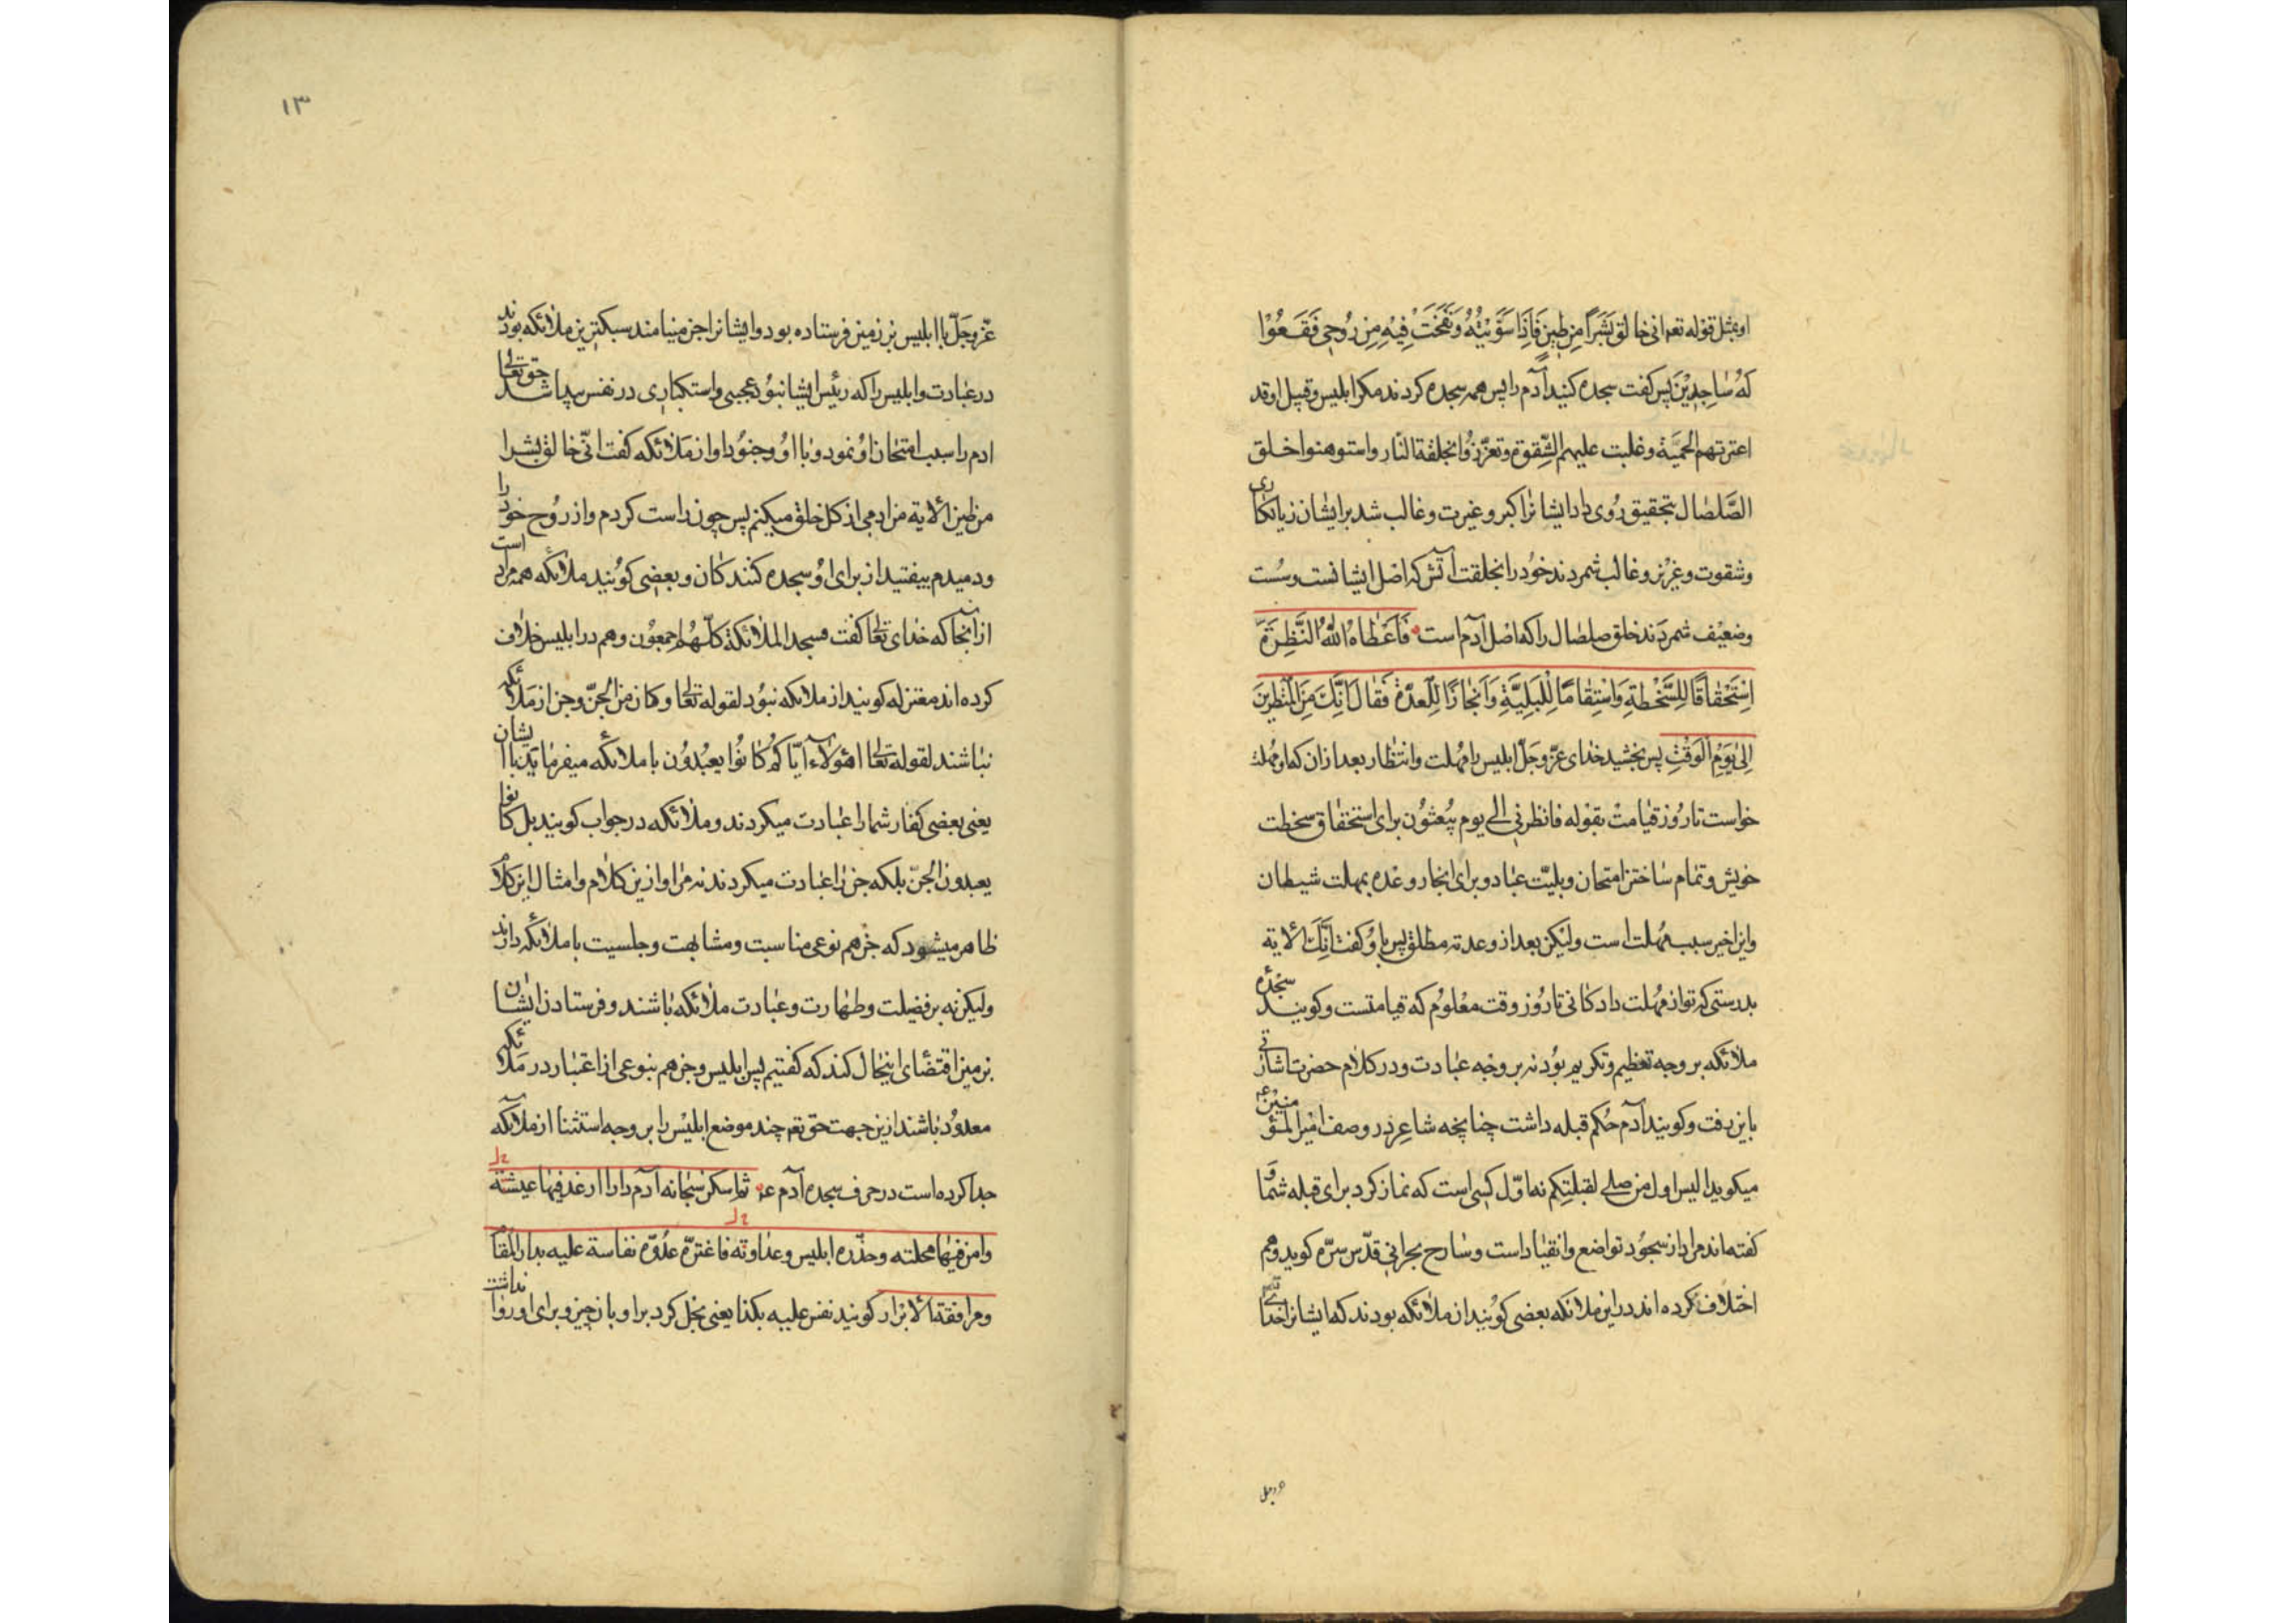 او بمثل قوله تعم انی خالق بَشَرًا مِن طِینٍ فَاِذَا سَوَّیْتُهُ وَنَفَخْتُ فِیْهِ مِن رُوحِی فَقَعُوْا
لهُ سَاجِدِیْنَ پس کفت سجده کنید آدم را پس همه سجده کردند مکر ابلیس و قبیل او قد
اعترتهم الحمیّة و غلبت علیهم الشّقوة و تعزّزوا بخلقة النّار و استوهنوا خلق
الصّلصال بتحقیق رُوی داد ایشانرا کبر و غیرت و غالب شد بر ایشان زیانکاری
و شقوت و عزیز و غالب شمردند خود را بخلقت آتش که اصل ایشانست و سُست
و ضعیف شمردند خلق صلصال را که اصل آدم است فَاَعْطَاهُ اللّٰهُ النَّظِرَةَ
اِسْتِحْقَاقًا لِلسَّخْطَةِ وَاسْتِتْمَامًا لِلْبَلِیَّةِ وَاِنْجَازًا لِلْعِدَةِ فَقَالَ اِنَّكَ مِنَ الْمُنْظَرِیْنَ
اِلیٰ یَوْمِ الْوَقْتِ پس بخشید خدای عزّ و جلّ ابلیس را مُهلت و انتظار بعد از ان که او مهلت
خواست تا رُوز قیامت بقوله فانظرنی الی یوم یُبعثُون برای استحقاق سخطت
خویش و تمام ساختن امتحان و بلیّت عباد و برای انجاز وعده بمهلت شیطان
و این اخیر سبب مُهلت است ولیکن بعد از وعده نه مطلق پس باو کفت اِنَّكَ الایة
بدرستی که تو از مُهلت داد کانی تا رُوز وقت معلُوم که قیامتست و کویند سجده
ملائکه بر وجه تعظیم و تکریم بُود نه بر وجه عبادت و در کلام حضرت اشارتی
باین رفت و کویند آدم حُکم قبله داشت چنانچه شاعر در وصف امیر المؤمنین عم
میکوید الیس اول من صلی لقبلتکم نه اوّل کسی است که نماز کرد برای قبله شما و
کفته اند مراد از سجُود تواضع و انقیاد است و شارح بحرانی قدّس سرّه کوید و هم
اختلاف کرده اند در این ملائکه بعضی کویند از ملائکه بودند که ایشانرا خدای
۱۳
عزّ و جَلّ با ابلیس بر زمین فرستاده بود و ایشانرا جن مینامند سبکترین ملائکه بودند
در عبادت و ابلیس را که رئیس ایشان بُود عجبی و استکباری در نفس پیدا شد حق تعالی
ادم را سبب امتحان او نمود و با او و جنُود او از ملائکه کفت انّی خالق بشرا
من طین الایة من ادمی از کل خلق میکنم پس چون راست کردم و از رُوح خود را
و دمیدم بیفتید از برای او سجده کنند کان و بعضی کویند ملائکه همه مراد است
از آنجا که خدای تعالی کفت فسجد الملائکة کلّهم اجمعُون و هم در ابلیس خلاف
کرده اند معتزله کویند از ملائکه نبُود لقوله تعالی و کان من الجنّ و جن از ملائکه
نباشند لقوله تعالی اهؤلاء ایّاکم کانُوا یعبُدُون با ملائکه میفرماید با ایشان
یعنی بعضی کفار شما را عبادت میکردند و ملائکه در جواب کویند بل کانوا
یعبدون الجنّ بلکه جن را عبادت میکردند نه مرا و از ین کلام و امثال این کلام
ظاهر میشود که جن هم نوعی مناسبت و مشابهت و جلسیت با ملائکه دارند
ولیکن نه بر فضیلت و طهارت و عبادت ملائکه باشند و فرستادن ایشان
بر زمین اقتضای اینحال کند که کفتیم پس ابلیس و جن هم بنوعی از اعتبار در ملائکه
معدوُد باشند ازین جهت حق تعم چند موضع ابلیس را بر وجه استثنا از ملائکه
جدا کرده است در حرف سجده آدم عم ثم اسکن سبحانه آدم دارا ارغد فیها عیشته
وامن فیها محلته و حذّره ابلیس و عداوته فاغترّه عدُوّه نفاسة علیه بدار المقام
و مرافقة الابرار کویند نفس علیه بکذا یعنی بخل کرد بر او بان چیز و برای او روا نداشت